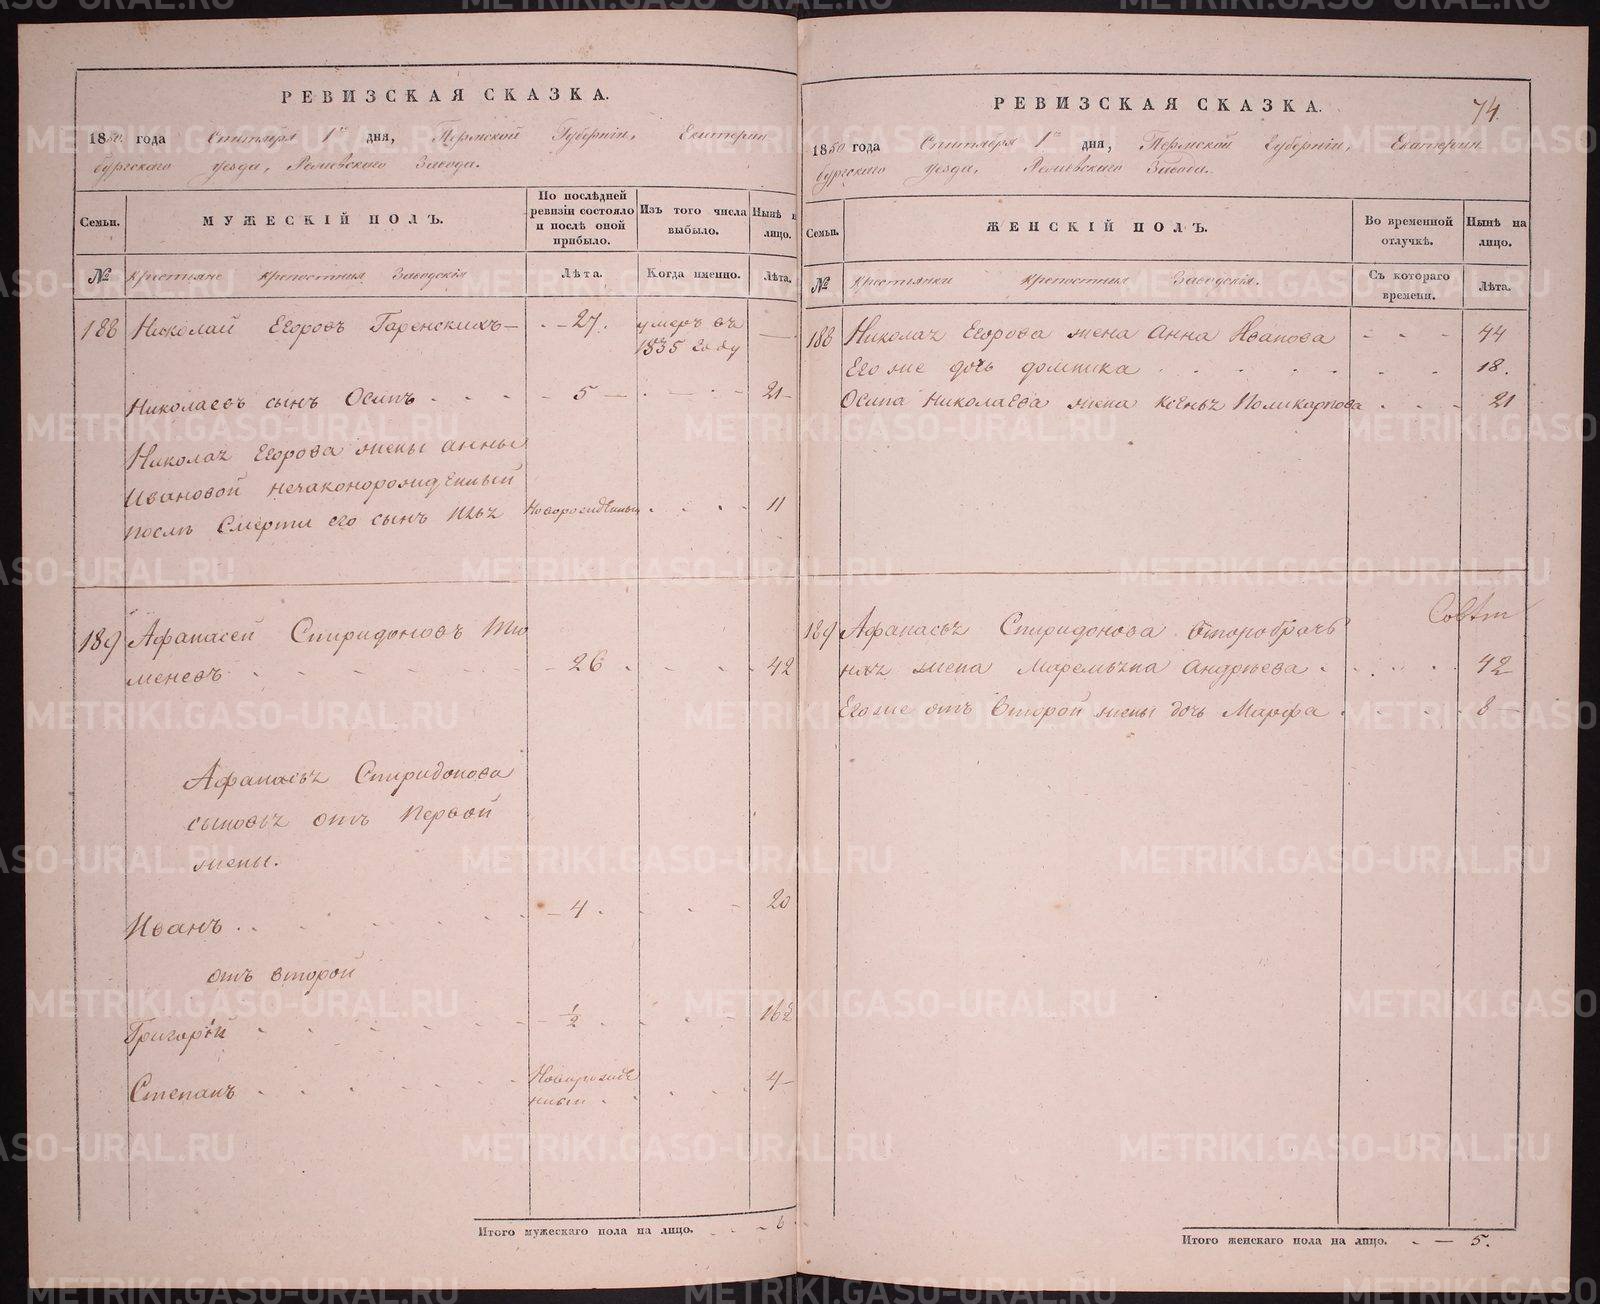 РЕВИЗСКАЯ СКАЗКА.
1850 года Сентября 1го дня, Пермской Губерніи, Екатерин
бургскаго уезда, Ревдинскаго Завода.
Семьи.
МУЖЕСКІЙ ПОЛЪ.
По послѣдней ревизіи состояло и послѣ оной прибыло.
Изъ того числа выбыло.
Нынѣ на лицо.
№
Крестьяне крепостныя Заводскія
Лѣта.
Когда именно.
Лѣта.
188 Николай Егоровъ Гаренскихъ — 27. умеръ въ
1835 году
Николаевъ сынъ Осипъ 5 21
Николая Егорова жены Анны
Ивановой незаконорожденный
послѣ смерти его сынъ Илья Новорожденный 11
189 Афанасей Спиридоновъ Тю
меневъ 26 42
Афанасья Спиридонова
сыновья отъ первой
жены.
Иванъ 4 20
отъ второй
Григорій 1/2 16 1/2
Степанъ Новорожде
нный 4
Итого мужескаго пола на лицо. 6
РЕВИЗСКАЯ СКАЗКА.
74.
1850 года Сентября 1го дня, Пермской Губерніи, Екатерин
бургскаго уезда, Завода.
Семьи.
ЖЕНСКІЙ ПОЛЪ.
Во временной отлучкѣ.
Нынѣ на лицо.
№
Крестьянки крепостныя Заводскія.
Съ котораго времени.
Лѣта.
188 Николая Егорова жена Анна Иванова 44
Его же дочь Домника 18.
Осипа Николаева жена Ксенья Поликарпова 21
189 Афанасья Спиридонова второбрачь
ная жена Маремьяна Андрѣева 42
Его же отъ второй жены дочь Марфа 8
Итого женскаго пола на лицо. 5.
METRIKI.GASO-URAL.RU